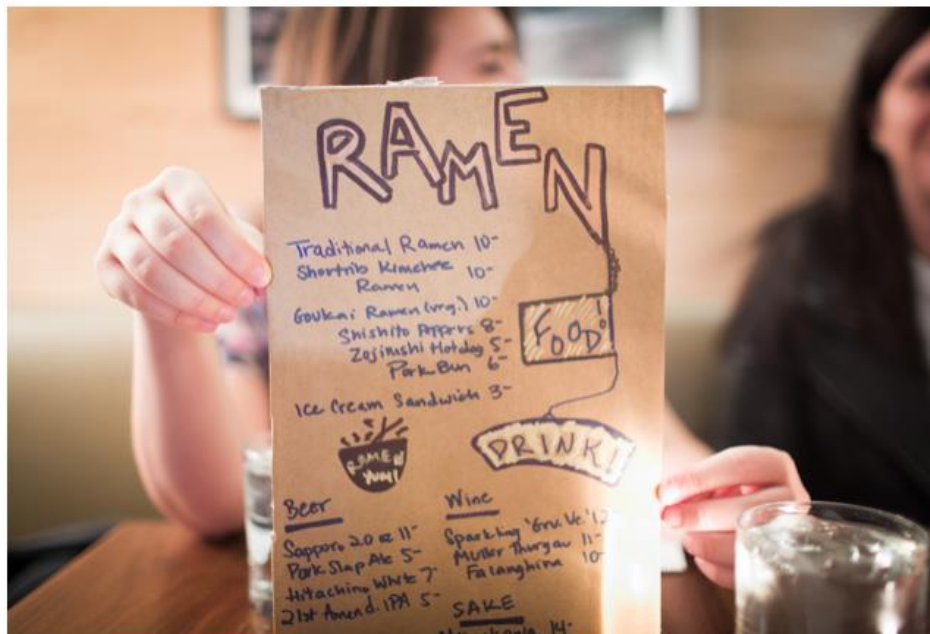 RAMEN
Traditional Ramen 10-
Shortrib Kimchee 10-
Ramen
Goukai Ramen (veg.) 10-
Shishito Peppers 8-
Zojirushi Hotdog 5-
Pork Bun 6-
Ice Cream Sandwich 3-
FOOD!
DRINK!
RAMEN
YUM!
Beer
Sapporo 20 oz 11-
Pork Slap Ale 5-
Hitachino White 7-
21st Amend. IPA 5-
Wine
Sparkling 'Gru. Ve.'
Muller Thurgau 11-
Falanghina 10-
SAKE
14-